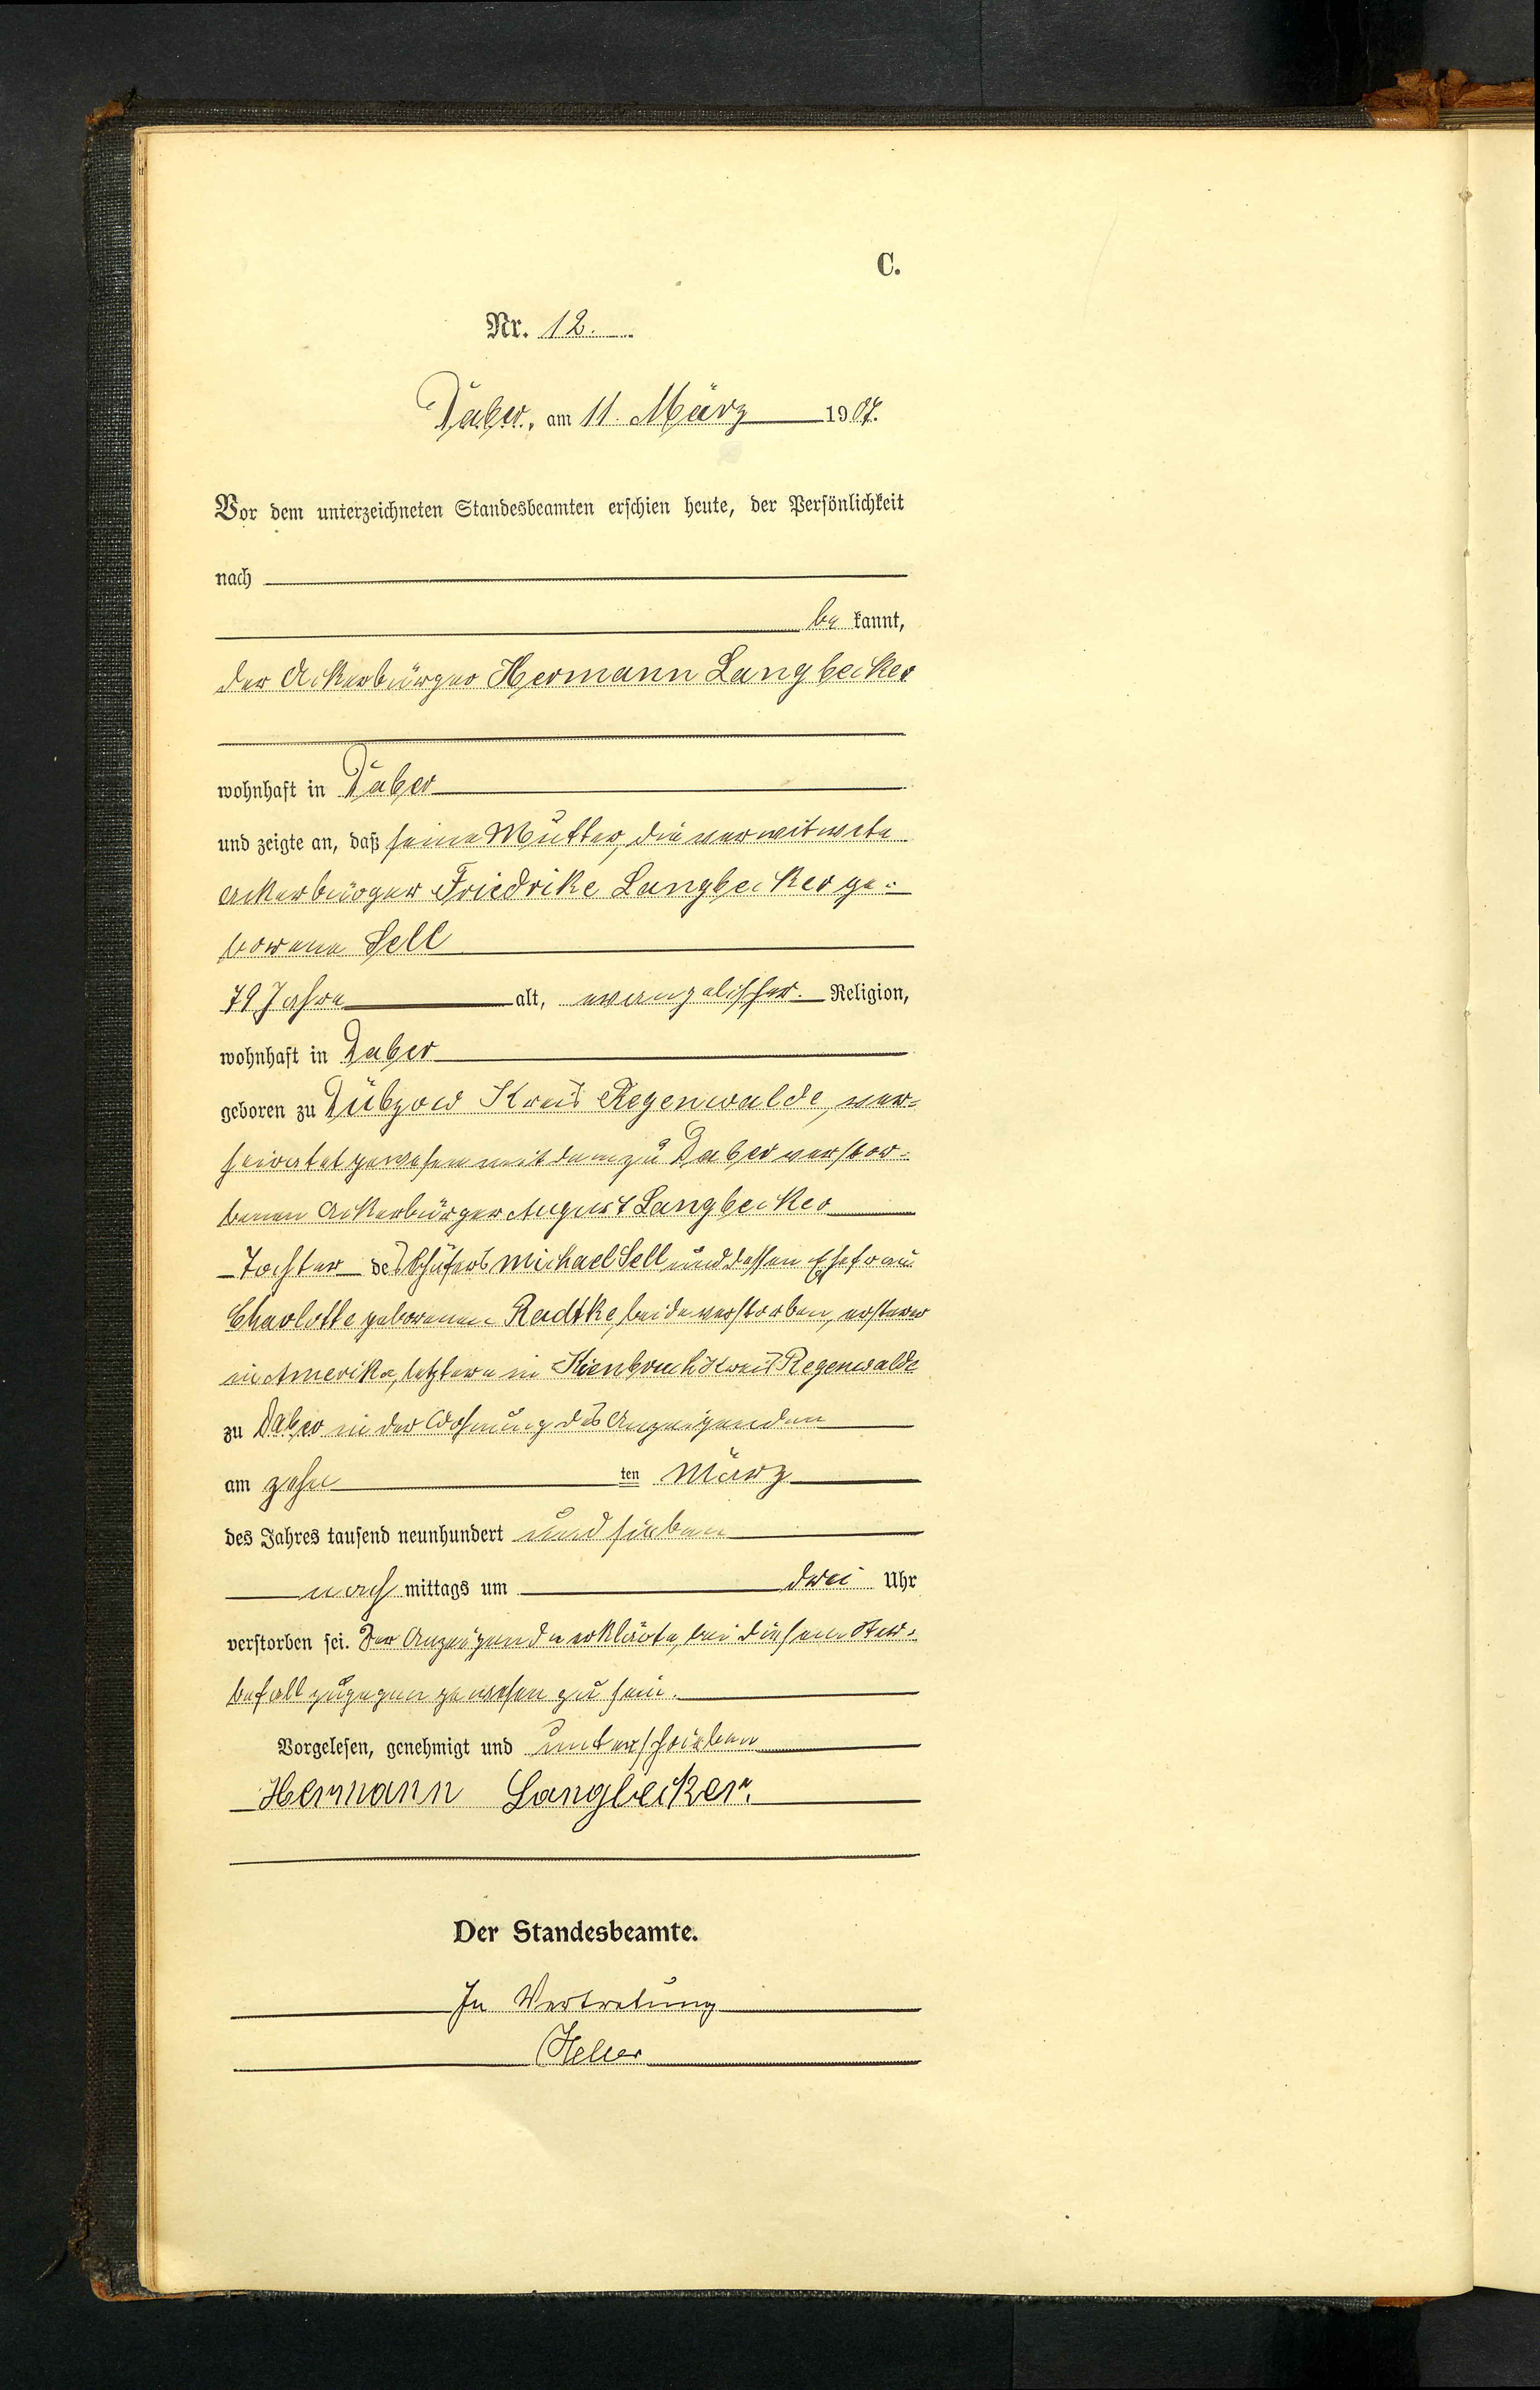 C.
Nr. 12.
Daber, am 11. März 1907.
Vor dem unterzeichneten Standesbeamten erschien heute, der Persönlichkeit
nach
be kannt,
der Ackerbürger Hermann Langbecker
wohnhaft in Daber
und zeigte an, daß seine Mutter, die verwitwete
Ackerbürger Friedrike Langbecker ge-
borene Sell
79 Jahre alt, evangelischer Religion,
wohnhaft in Daber
geboren zu Dübzow Kreis Regenwalde, ver-
heiratet gewesen mit dem zu Daber verstor-
benen Ackerbürger August Langbecker
Tochter des Schäfers Michael Sell und dessen Ehefrau
Charlotte geborenen Radtke, beide verstorben, ersterer
in Amerika, letztere in Kienbruch Kreis Regenwalde
zu Daber in der Wohnung des Anzeigenden
am zehn ten März
des Jahres tausend neunhundert und sieben
nach mittags um drei Uhr
verstorben sei. Der Anzeigende erklärte, bei diesem Ster-
befall zugegen gewesen zu sein.
Vorgelesen, genehmigt und unterschrieben
Hermann Langbecker.
Der Standesbeamte.
In Vertretung
Heller